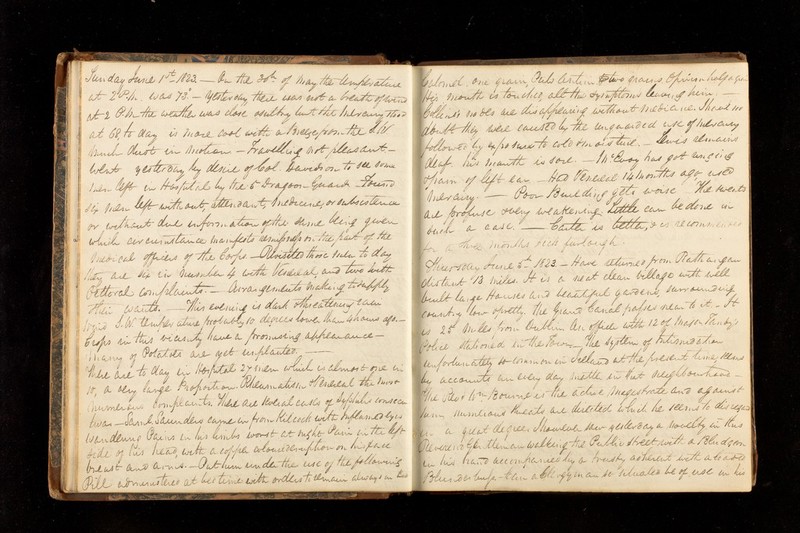 Sunday June 1st 1823 — On the 30th of May the temperature
at 2 P.M. was 73° — Yesterday there was not a breath of wind
at 2 P.M. the weather was close & sultry but the Mercury stood
at 68 to day is more cool with a breeze from the S.W.
much dust in motion — Travelling not pleasant —
Went yesterday by desire of Col. Davidson to see some
men left in Hospital by the 6 Dragoon Guards — Found
six men left without attendant, Medicine, or subsistence
or without due information of the same being given
which circumstance manifests on the part of the
Medical officers of the Corps — Revisited these men to day
they are six in number 4 with Venereal, and two with
Pectoral complaints. — Arrangements making to supply
their wants. — This evening is dark & threatening rain
wind S.W. temperature probably 10 degrees lower than 3 hours ago —
Crops in this vicinity have a promising appearance —
many of Potatoes are yet unplanted. —
There are to day in Hospital 27 men which is almost one in
10, a very large proportion. Rheumatism & Venereal the most
numerous complaints. There are several cases of Syphilis
— Saml Saunders came in from Kilcock with inflamed eyes
wandering Pains in his limbs worst at night Pain in the left
side of his head, with a copper colour eruption on his face
breast and arms. — Put him under the use of the following
Pill administered at bed time with orders to remain always in bed
Calomel one grain, Pulv. Antim two grains, Opium half a gr
His mouth is touched, all the symptoms leaving him. —
nodes are disappearing without medicine. Should no
doubt they were caused by the unguarded use of Mercury
followed by exposure to cold & moisture. — remains
deaf his mouth is sore. — McEvoy has got
of left ear. — Had Venereal 14 months ago used
Mercury. — Poor Bunelding gets worse. The sweats
are profuse & very weakening. Little can be done in
such a case. — is better, & is recommended
for a three months sick furlough.
Thursday June 5th 1823 — Have returned from Rathangan
distant 13 miles. It is a neat clean village with well
built large Houses and beautiful gardens, surrounding
country low & pretty. The Grand Canal passes near to it. It
is 28 miles from Dublin. An officer with 12 of Major Tandy's
Police stationed in the Town. The system of Intimidation
unfortunately so common in Ireland at the present time, seems
by accounts an every day matter in that neighbourhood —
The Revd Wm Bourne is the active Magistrate and against
him numerous threats are directed which he seems to disregard
in a great degree. However saw yesterday a novelty in this
Reverend Gentleman walking the Public street with a Bludgeon
in his hand accompanied by a trusty adherent with a loaded
Blunderbuss — Can a Clergyman so situated be of use in his